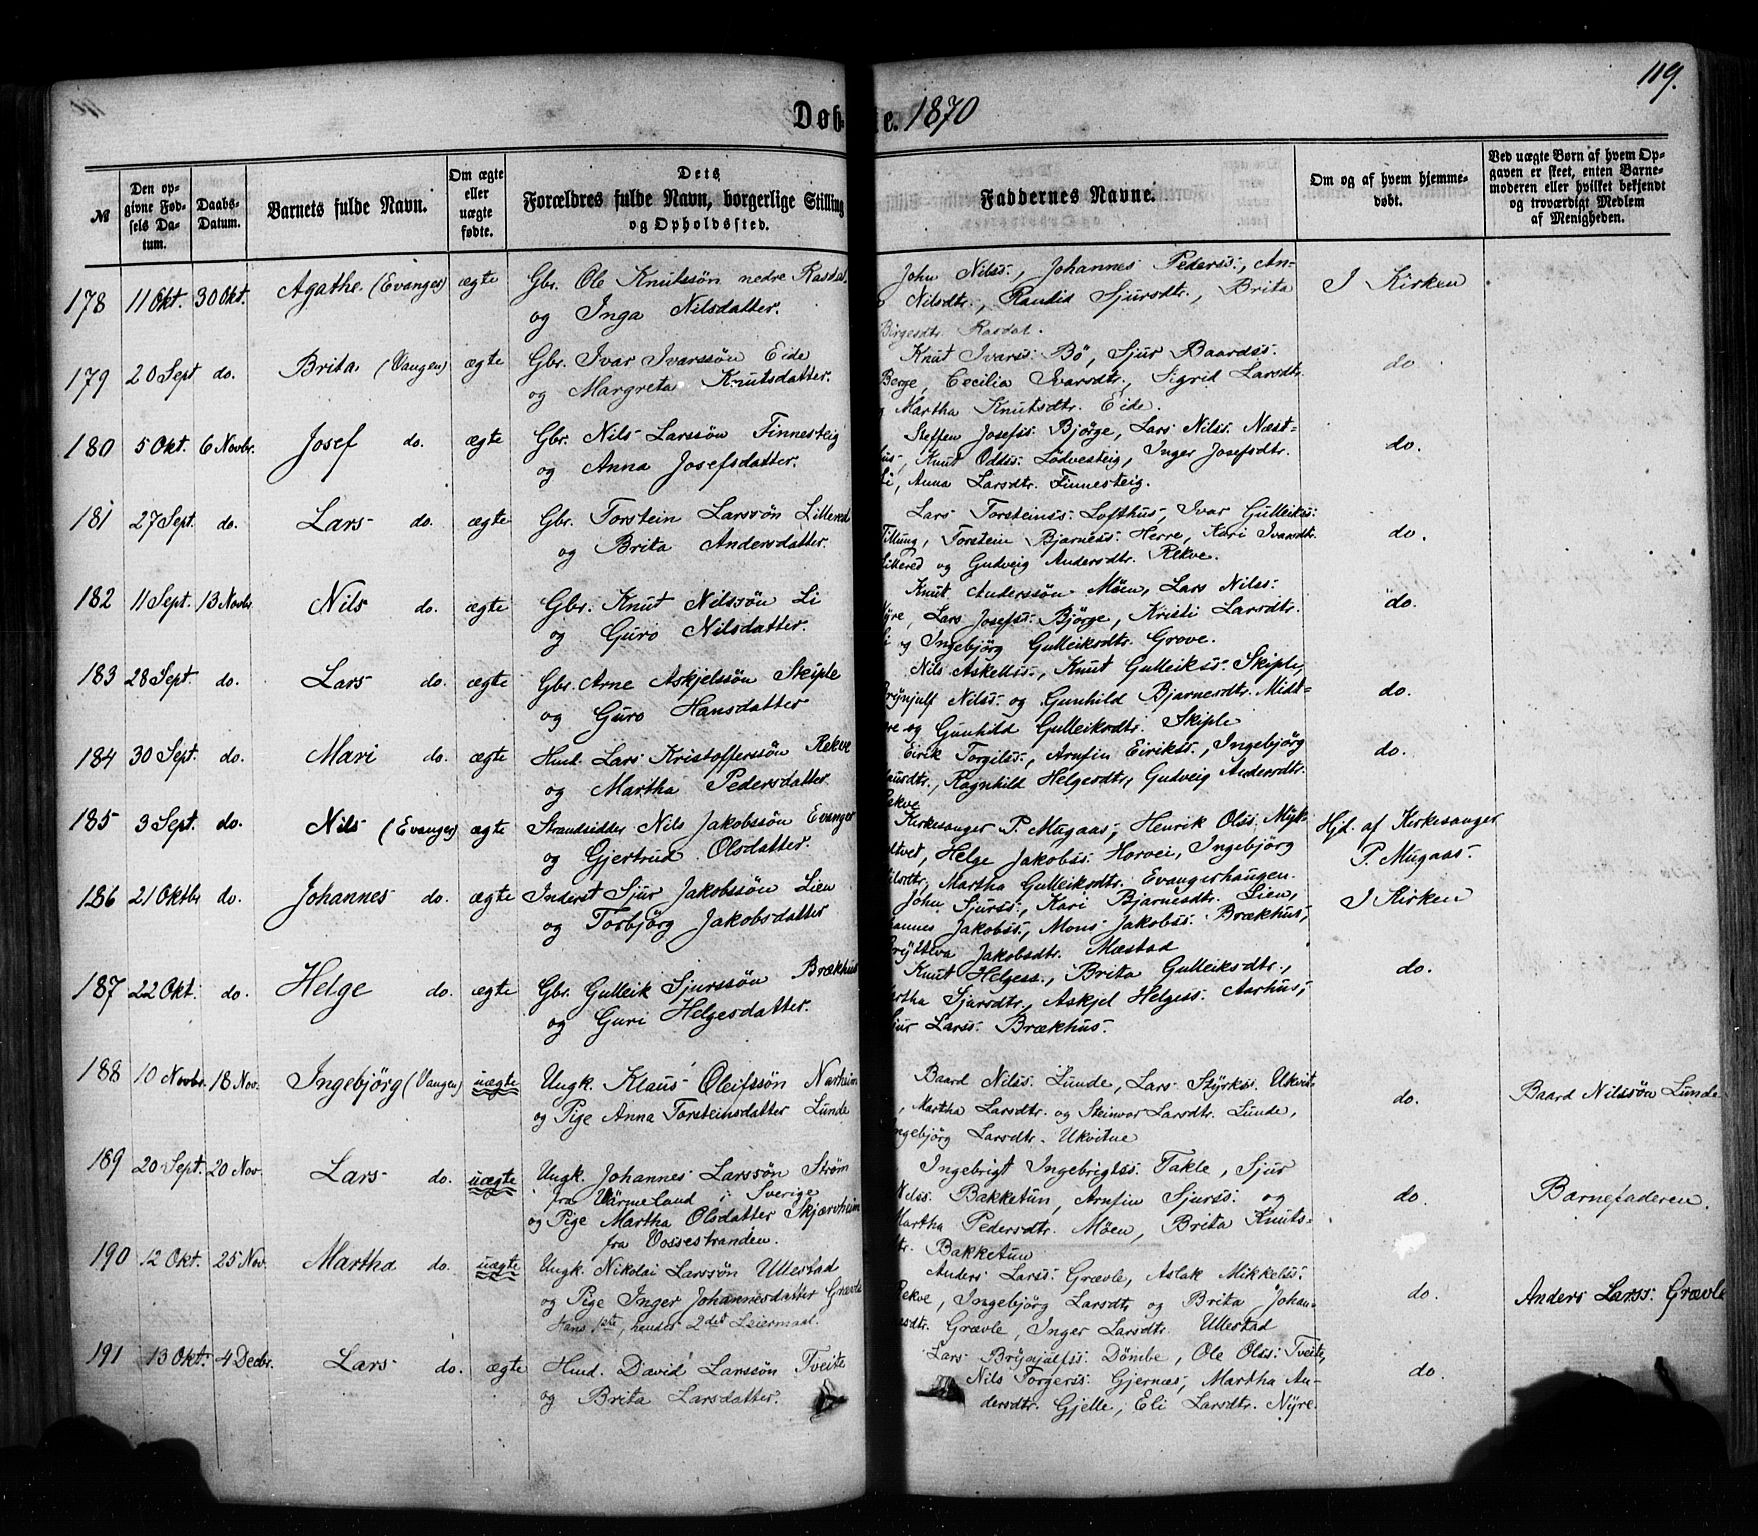 119.
Døbte. 1870
№
Den opgivne Fødsels Datum.
Daabs-Datum.
Barnets fulde Navn.
Om ægte eller uægte fødte.
Dets Forældres fulde Navn, borgerlige Stilling og Opholdssted.
Faddernes Navne.
Om og af hvem hjemmedøbt.
Ved uægte Børn af hvem Opgaven er skeet, enten Barnemoderen eller hvilket bekjendt og troværdigt Medlem af Menigheden.
178 11 Okt. 30 Okt. Agathe (Evanger) ægte Gbr. Ole Knutssön nedre Rasdal
og Inga Nilsdatter.
John Nilss:, Johannes Pederss:, An-
Nilsdtr., Randid Sjursdtr., Brita
Birgesdtr. Rasdal.
I Kirken
179 20 Sept do. Brita (Vangen) ægte Gbr. Ivar Ivarssön Eide
og Margreta Knutsdatter.
Knut Ivarss: Bö, Sjur Baardss:
Berge, Cecilia Ivarsdtr., Sigrid Larsdtr.
Martha Knutsdtr. Eide.
do
180 5 Okt. 6 Novbr. Josef do. ægte Gbr. Nils Larssön Finnesteig
og Anna Josefsdatter.
Steffen Josefss: Björge, Lars Nilss: Næst=
hus, Knut Oddss: Lödvesteig, Inger Josefsdtr.
Li, Anna Larsdtr. Finnesteig.
do.
181 27 Sept. do. Lars do. ægte Gbr. Torstein Larssön Lillered
og Brita Andersdatter.
Lars Torsteinss: Lofthus, Ivar Gulleikss:
Tillung, Torstein Bjarness: Herre, Kari Ivarsdtr.
Lillered og Gudveig Andersdtr. Rekve.
do.
182 11 Sept. 13 Novbr Nils do. ægte Gbr. Knut Nilssön Li
og Guro Nilsdatter.
Knut Anderssön Möen, Lars Nilss:
Nyre, Lars Josefss: Björge, Kristi Larsdtr.
Li og Ingebjörg Gulleiksdtr. Grove.
do.
183 28 Sept do. Lars do. ægte Gbr. Arne Askjelssön Skiple
og Guro Hansdatter
Nils Askellss:, Knut Gulleikss: Skiple,
Brynjulf Nilss: og Gunhild Bjarnesdtr. Midt=
og Gunhild Gulleiksdtr. Skiple
do.
184 30 Sept. do. Mari do. ægte Hmd. Lars Kristofferssön Rekve
og Martha Pedersdatter.
Eirik Torgilss:, Arnfin Eirikss:, Ingebjörg
Ragnhild Helgesdtr., Gudveig Andersdtr.
Rekve
do.
185 3 Sept. do. Nils (Evanger) ægte Strandsidder Nils Jakobssön Evanger
og Gjertrud Olsdatter.
Kirkesanger P. Mugaas, Henrik Olss: Myk-
ltvet, Helge Jakobss: Horvei, Ingebjörg
Nilsdtr., Martha Gulleiksdtr. Evangerhaugen.
Hjd. af Kirkesanger
P. Mugaas.
186 21 Oktbr do. Johannes do. ægte Inderst Sjur Jakobssön Lien
og Torbjörg Jakobsdatter
John Sjurss:, Kari Bjarnesdtr. Lien,
Johannes Jakobss:, Mons Jakobss: Brækhus,
Jakobsdtr. Mæstad
I Kirken
187 22 Okt. do. Helge do. ægte Gbr. Gulleik Sjurssön Brækhus
og Guri Helgesdatter.
Knut Helgess., Brita Gulleiksdtr.,
Martha Sjursdtr., Askjel Helgess: Aarhus,
Sjur Larss: Brækhus.
do.
188 10 Novbr. 18 Nov. Ingebjörg (Vangen) uægte Ungk. Klaus Oleifssön Narheim
og Pige Anna Torsteinsdatter Lunde
Baard Nilss: Lunde, Lars Styrkss: Ukvit-
, Martha Larsdtr. og Steinvor Larsdtr. Lunde,
Ingebjörg Larsdtr. Ukvitne
do.
Baard Nilssön Lunde
189 20 Sept. 20 Nov. Lars do. uægte Ungk. Johannes Larssön Ström
fra Värmeland i Sverige
og Pige Martha Olsdatter Skjærvheim
fra Vossestranden.
Ingebrigt Ingebrigtss: Takle, Sjur
Nilss: Bakketun, Arnfin Sjurss: og
Martha Pedersdtr. Möen, Brita Knuts-
dtr. Bakketun
do.
Barnefaderen.
190 12 Okt. 25 Nov. Martha do. uægte Ungk. Nikolai Larssön Ullestad
og Pige Inger Johannesdatter Grævle
Hans 1ste, hendes 2det Leiermaal.
Anders Larss: Grævle, Aslak Mikkelss:
Rekve, Ingebjörg Larsdtr og Brita Johan-
nesdtr. Grævle, Inger Larsdtr. Ullestad
do.
Anders Larss: Grævle
191 13 Okt. 4 Decbr. Lars do. ægte Hmd. David Larssön Tveite
og Brita Larsdatter.
Lars Brynjulfss: Dömbe, Ole Olss: Tveite,
Nils Torgerss: Gjernes, Martha An-
dersdtr. Gjelle, Eli Larsdtr. Nyre
do.